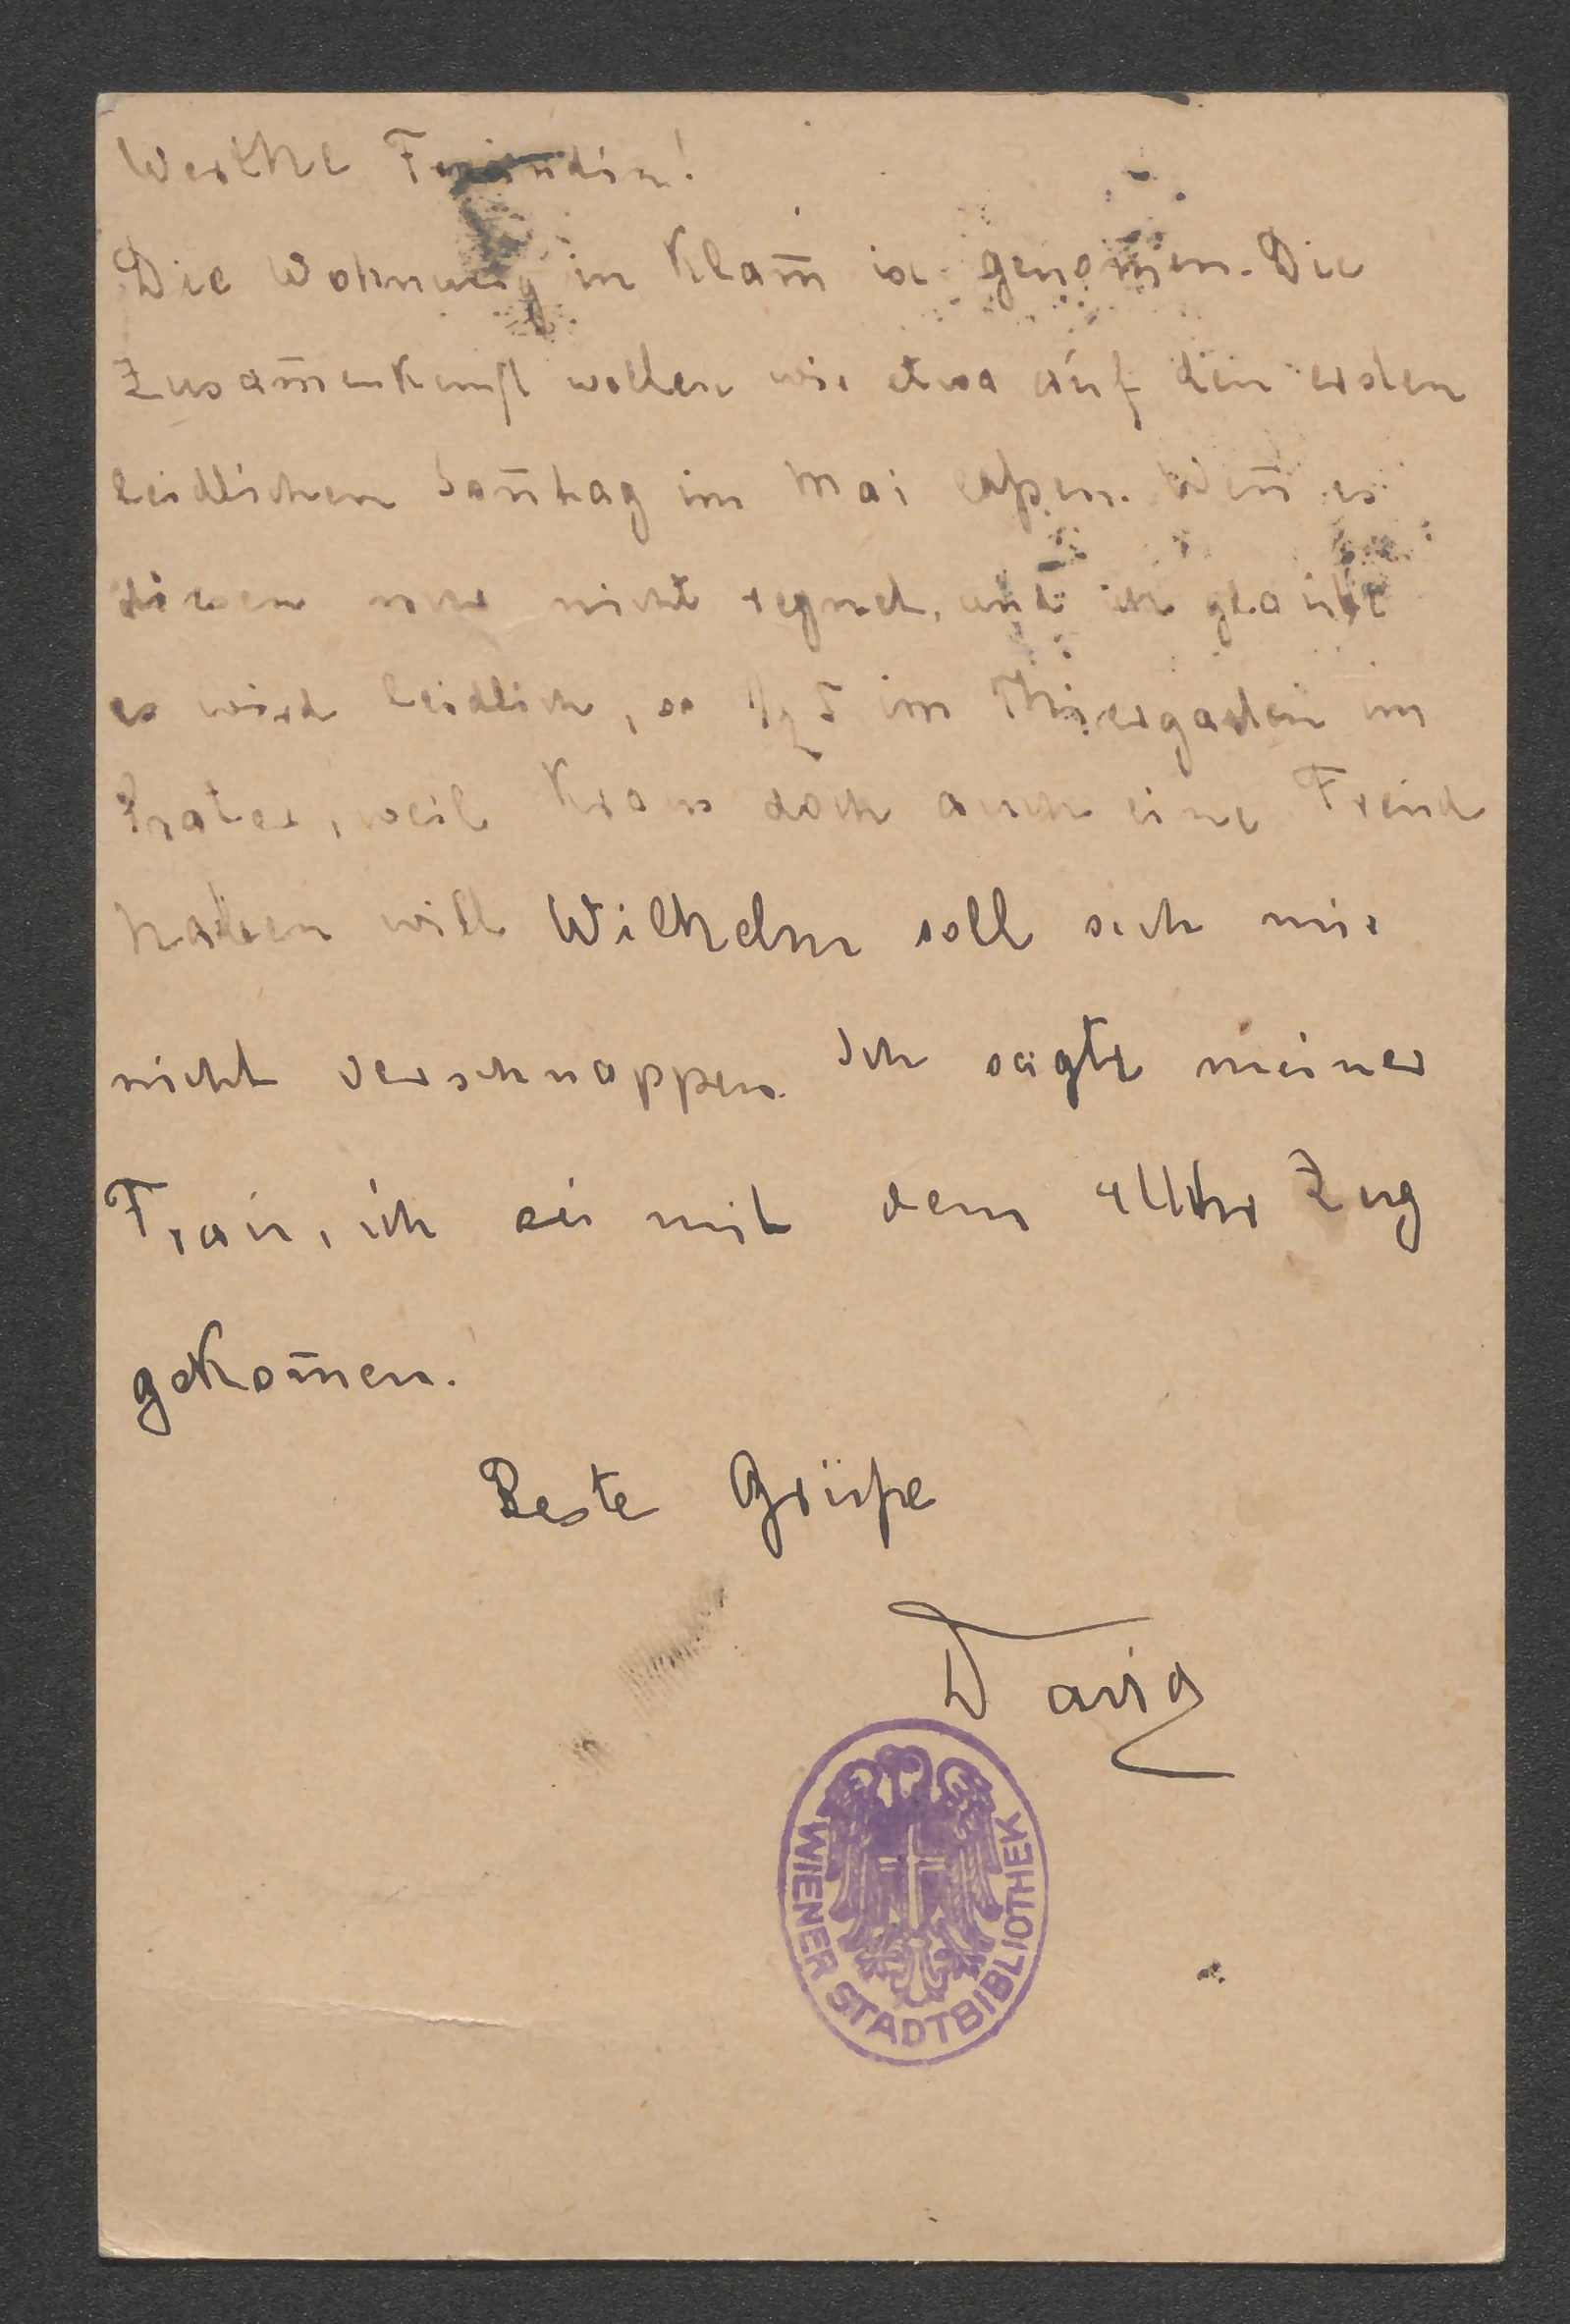 Werthe Freundin!
Die Wohnung in Klam̄ ist genom̄en. Die
Zusam̄enkunft wollen wir etwa auf den ersten
leidlichen Son̄tag im Mai laßen. Wen̄ es
diesen nur nicht regnet, und ich glaube
es wird leidlich, so 1/2 5 im Thiergarten im
Prater, weil Kraus doch auch eine Freud
haben will Wilhelm soll sich mir
nicht verschnappen. Ich sagte meiner
Frau, ich sei mit dem 4 Uhr Zug
gekom̄en.
Beste Grüße
David
WIENER STADTBIBLIOTHEK